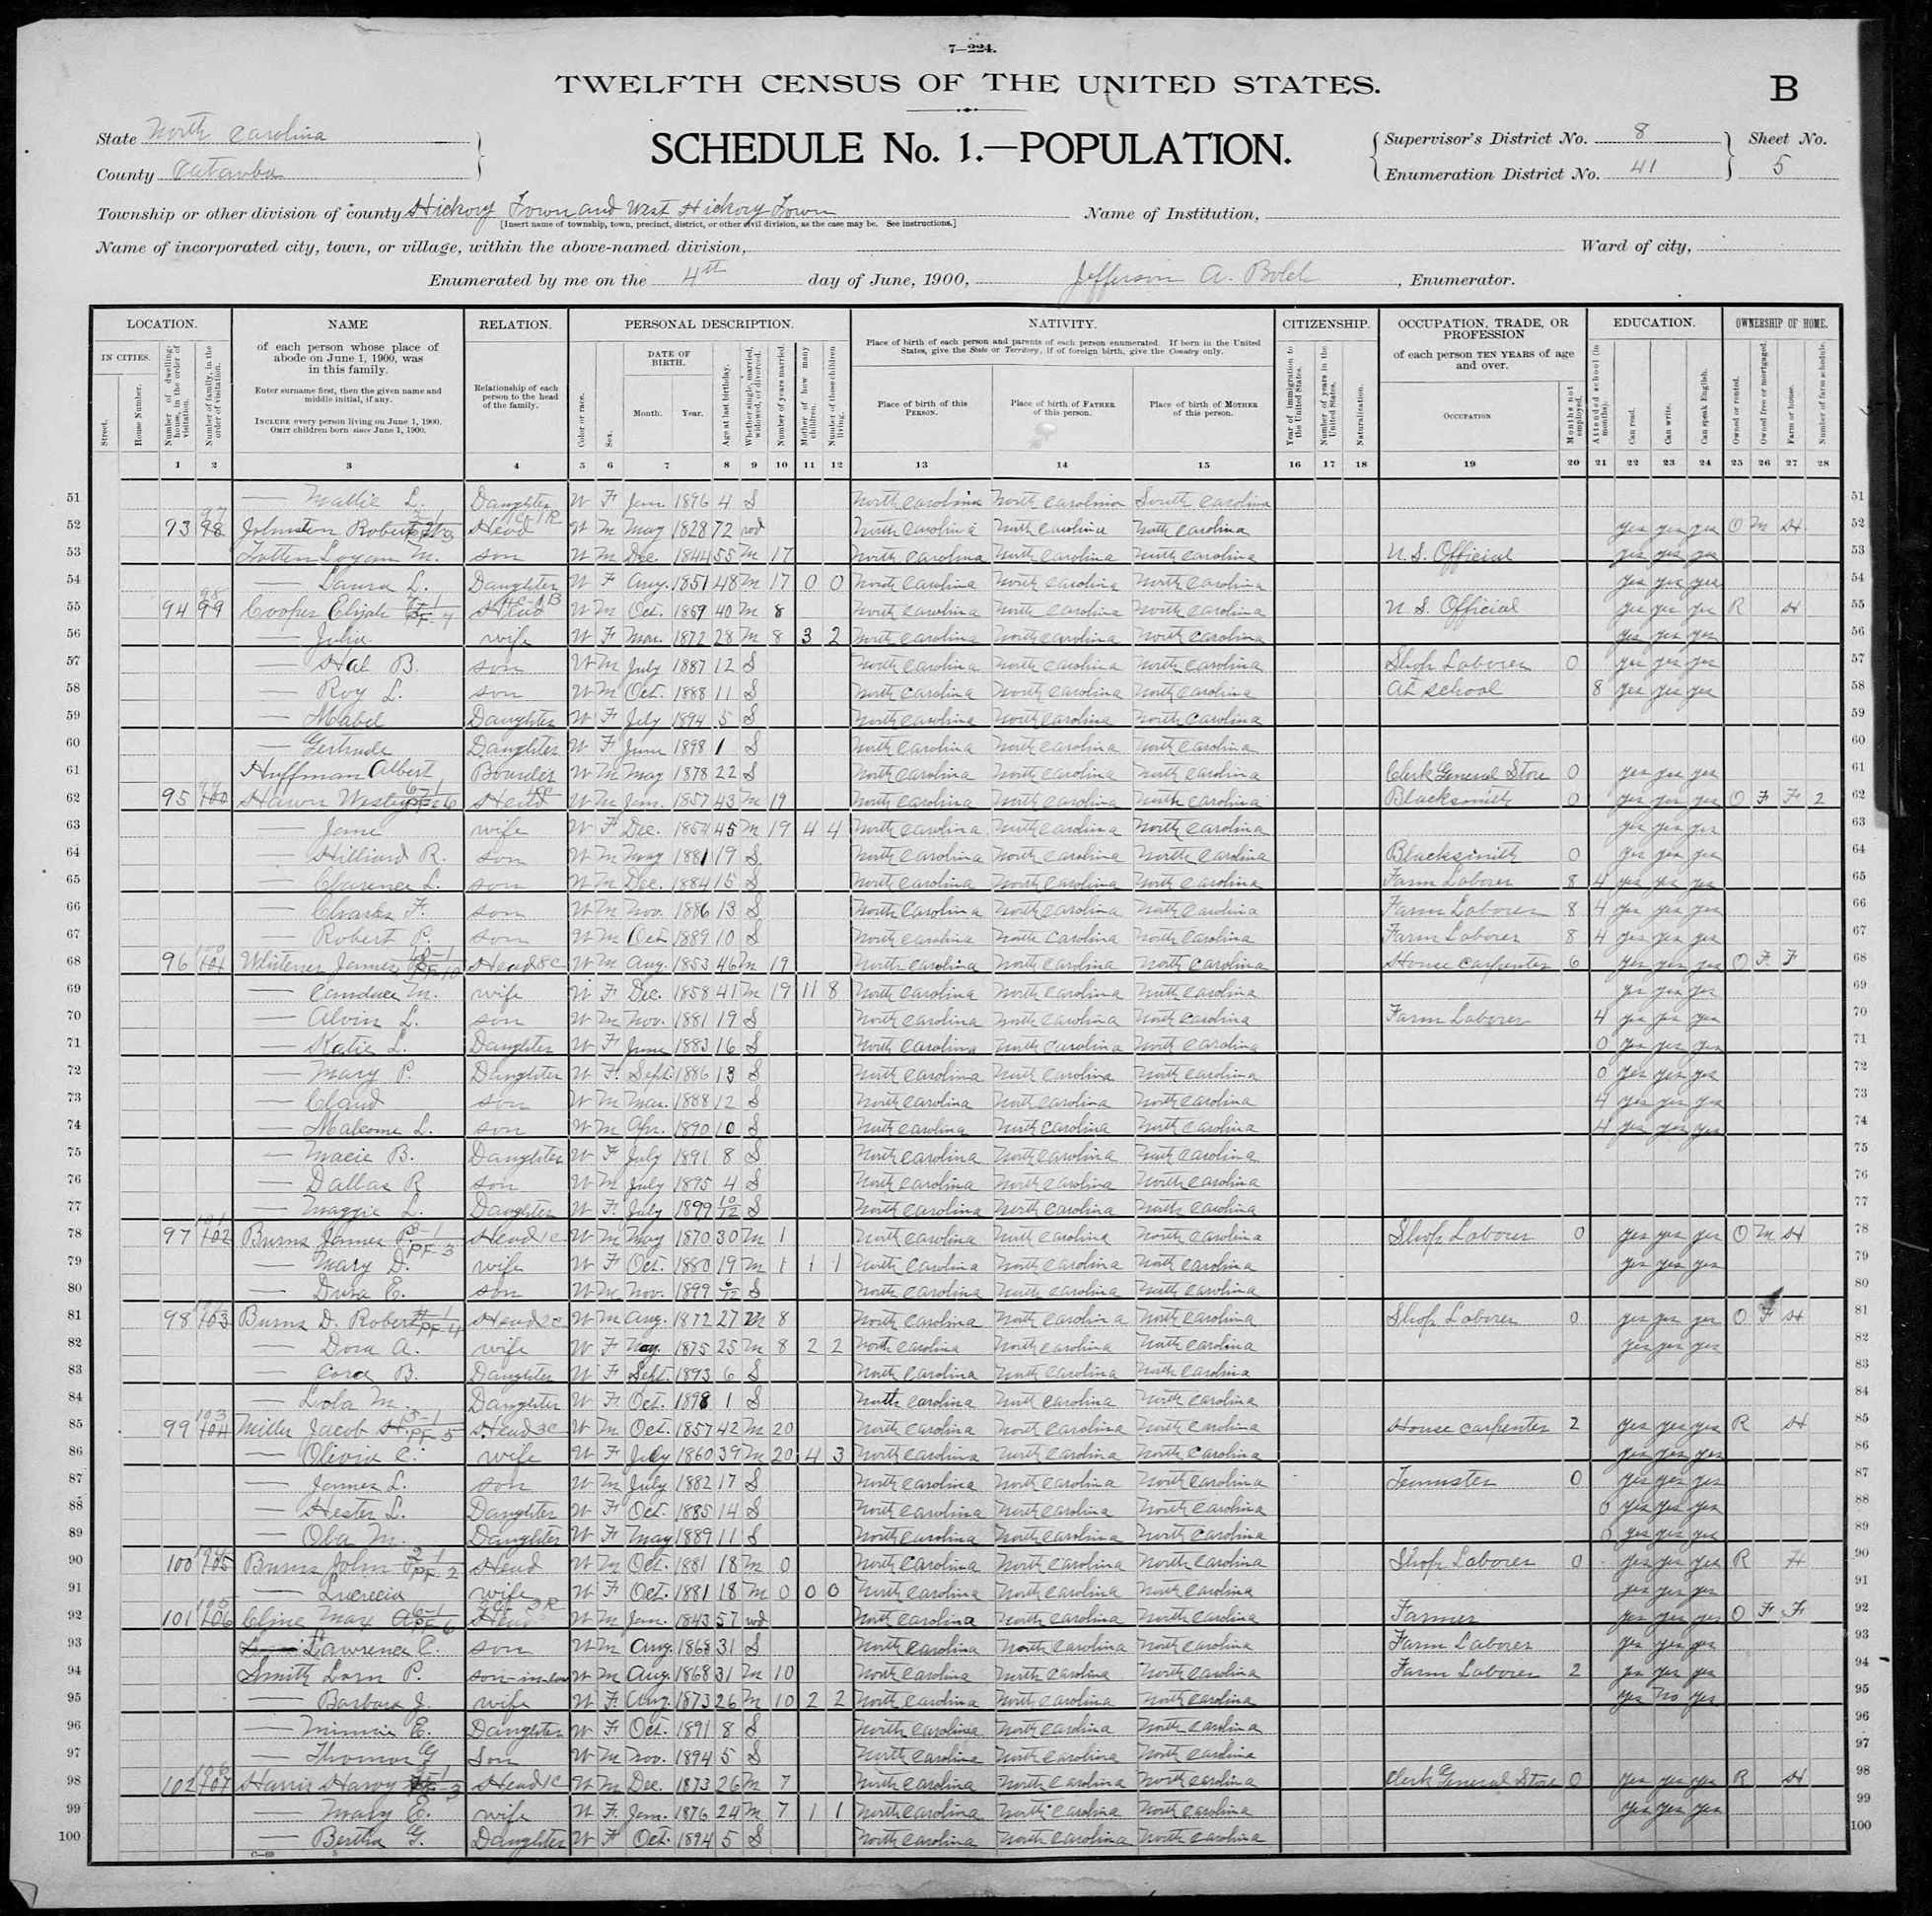 7—224.
TWELFTH CENSUS OF THE UNITED STATES.
B
State North Carolina
County Catawba
SCHEDULE No. 1.—POPULATION.
Supervisor's District No. 8
Enumeration District No. 41
Sheet No.
5
Township or other division of county Hickory Town and West Hickory Town
[Insert name of township, town, precinct, district, or other civil division, as the case may be. See instructions.]
Name of Institution,
Name of incorporated city, town, or village, within the above-named division,
Ward of city,
Enumerated by me on the 4th day of June, 1900, Jefferson A. Bolch, Enumerator.
LOCATION. NAME RELATION. PERSONAL DESCRIPTION. NATIVITY. CITIZENSHIP. OCCUPATION, TRADE, OR PROFESSION EDUCATION. OWNERSHIP OF HOME.
IN CITIES. Street. House Number. Number of dwelling-house, in the order of visitation. Number of family, in the order of visitation.
of each person whose place of abode on June 1, 1900, was in this family.
Enter surname first, then the given name and middle initial, if any.
INCLUDE every person living on June 1, 1900. OMIT children born since June 1, 1900.
Relationship of each person to the head of the family.
Color or race. Sex. DATE OF BIRTH. Month. Year. Age at last birthday. Whether single, married, widowed, or divorced. Number of years married. Mother of how many children. Number of these children living.
Place of birth of each person and parents of each person enumerated. If born in the United States, give the State or Territory, if of foreign birth, give the Country only.
Place of birth of this PERSON. Place of birth of FATHER of this person. Place of birth of MOTHER of this person.
Year of immigration to the United States. Number of years in the United States. Naturalization.
of each person TEN YEARS of age and over.
OCCUPATION Months not employed.
Attended school (in months). Can read. Can write. Can speak English.
Owned or rented. Owned free or mortgaged. Farm or house. Number of farm schedule.
1 2 3 4 5 6 7 8 9 10 11 12 13 14 15 16 17 18 19 20 21 22 23 24 25 26 27 28
51 — Mallie L. Daughter W F Jan 1896 4 S North Carolina North Carolina South Carolina 51
52 93 98 Johnston Robert Head W M May 1828 72 wd North Carolina North Carolina North Carolina yes yes yes O M H 52
53 Totten Logan M. son W M Dec. 1844 55 M 17 North Carolina North Carolina North Carolina U. S. Official yes yes yes 53
54 — Laura L. Daughter W F Aug. 1851 48 M 17 0 0 North Carolina North Carolina North Carolina yes yes yes 54
55 94 99 Cooper Elijah Head W M Oct. 1859 40 M 8 North Carolina North Carolina North Carolina U. S. Official yes yes yes R H 55
56 — Julia wife W F Mar. 1872 28 M 8 3 2 North Carolina North Carolina North Carolina yes yes yes 56
57 — Hal B. son W M July 1887 12 S North Carolina North Carolina North Carolina Shop Laborer 0 yes yes yes 57
58 — Roy L. son W M Oct. 1888 11 S North Carolina North Carolina North Carolina At school 8 yes yes yes 58
59 — Mabel Daughter W F July 1894 5 S North Carolina North Carolina North Carolina 59
60 — Gertrude Daughter W F June 1898 1 S North Carolina North Carolina North Carolina 60
61 Huffman Albert Boarder W M May 1878 22 S North Carolina North Carolina North Carolina Clerk General Store 0 yes yes yes 61
62 95 100 Hawn Wesley Head W M Jan. 1857 43 M 19 North Carolina North Carolina North Carolina Blacksmith 0 yes yes yes O F F 2 62
63 — Jane wife W F Dec. 1854 45 M 19 4 4 North Carolina North Carolina North Carolina yes yes yes 63
64 — Hilliard R. son W M May 1881 19 S North Carolina North Carolina North Carolina Blacksmith 0 yes yes yes 64
65 — Clarence L. son W M Dec. 1884 15 S North Carolina North Carolina North Carolina Farm Laborer 8 4 yes yes yes 65
66 — Charles F. son W M Nov. 1886 13 S North Carolina North Carolina North Carolina Farm Laborer 8 4 yes yes yes 66
67 — Robert P. son W M Oct 1889 10 S North Carolina North Carolina North Carolina Farm Laborer 8 4 yes yes yes 67
68 96 101 Whitener James Head W M Aug. 1853 46 M 19 North Carolina North Carolina North Carolina House Carpenter 6 yes yes yes O F F 68
69 — Candace M. wife W F Dec. 1858 41 M 19 11 8 North Carolina North Carolina North Carolina yes yes yes 69
70 — Alvin L. son W M Nov. 1881 19 S North Carolina North Carolina North Carolina Farm Laborer 4 yes yes yes 70
71 — Katie L. Daughter W F June 1883 16 S North Carolina North Carolina North Carolina 0 yes yes yes 71
72 — Mary P. Daughter W F. Sept. 1886 13 S North Carolina North Carolina North Carolina 0 yes yes yes 72
73 — Claud son W M Mar. 1888 12 S North Carolina North Carolina North Carolina 4 yes yes yes 73
74 — Malcome L. son W M Apr. 1890 10 S North Carolina North Carolina North Carolina 4 yes yes yes 74
75 — Macie B. Daughter W F July 1891 8 S North Carolina North Carolina North Carolina 75
76 — Dallas R son W M July 1895 4 S North Carolina North Carolina North Carolina 76
77 — Maggie L. Daughter W F. July 1899 10/12 S North Carolina North Carolina North Carolina 77
78 97 102 Burns James P. Head W M May 1870 30 M 1 North Carolina North Carolina North Carolina Shop Laborer 0 yes yes yes O M H 78
79 — Mary D. wife W F Oct. 1880 19 M 1 1 1 North Carolina North Carolina North Carolina yes yes yes 79
80 — E. son W M Nov. 1899 6/12 S North Carolina North Carolina North Carolina 80
81 98 103 Burns D. Robert Head W M Aug. 1872 27 M 8 North Carolina North Carolina North Carolina Shop Laborer 0 yes yes yes O F H 81
82 — Dora A. wife W F May. 1875 25 M 8 2 2 North Carolina North Carolina North Carolina yes yes yes 82
83 — Cora B. Daughter W F Sept. 1893 6 S North Carolina North Carolina North Carolina 83
84 — Lola M. Daughter W F. Oct. 1898 1 S North Carolina North Carolina North Carolina 84
85 99 104 Miller Jacob H. Head W M Oct. 1857 42 M 20 North Carolina North Carolina North Carolina House Carpenter 2 yes yes yes R H 85
86 — Olivia C. wife W F July 1860 39 M 20 4 3 North Carolina North Carolina North Carolina yes yes yes 86
87 — James L. son W M July 1882 17 S North Carolina North Carolina North Carolina Teamster 0 yes yes yes 87
88 — Hester L. Daughter W F Oct. 1885 14 S North Carolina North Carolina North Carolina 0 yes yes yes 88
89 — Ola M. Daughter W F May 1889 11 S North Carolina North Carolina North Carolina 0 yes yes yes 89
90 100 105 Burns John Head W M Oct. 1881 18 M 0 North Carolina North Carolina North Carolina Shop Laborer 0 yes yes yes R H 90
91 — Lucrecia wife W F Oct. 1881 18 M 0 0 0 North Carolina North Carolina North Carolina yes yes yes 91
92 101 106 Cline Max A. Head W M Jan. 1843 57 wd North Carolina North Carolina North Carolina Farmer yes yes yes O F F 92
93 Lawrence C. son W M Aug. 1868 31 S North Carolina North Carolina North Carolina Farm Laborer yes yes yes 93
94 Smith Lorn P. son-in-law W M Aug. 1868 31 M 10 North Carolina North Carolina North Carolina Farm Laborer 2 yes yes yes 94
95 — Barbara J. wife W F. Aug. 1873 26 M 10 2 2 North Carolina North Carolina North Carolina yes no yes 95
96 — Minnie E. Daughter W F Oct. 1891 8 S North Carolina North Carolina North Carolina 96
97 — Thomas G Son W M Nov. 1894 5 S North Carolina North Carolina North Carolina 97
98 102 107 Harris Harvy Head W M Dec. 1873 26 M 7 North Carolina North Carolina North Carolina Clerk General Store 0 yes yes yes R H 98
99 — Mary E. wife W F. Jan. 1876 24 M 7 1 1 North Carolina North Carolina North Carolina yes yes yes 99
100 — Bertha G. Daughter W F Oct. 1894 5 S North Carolina North Carolina North Carolina 100
C—69